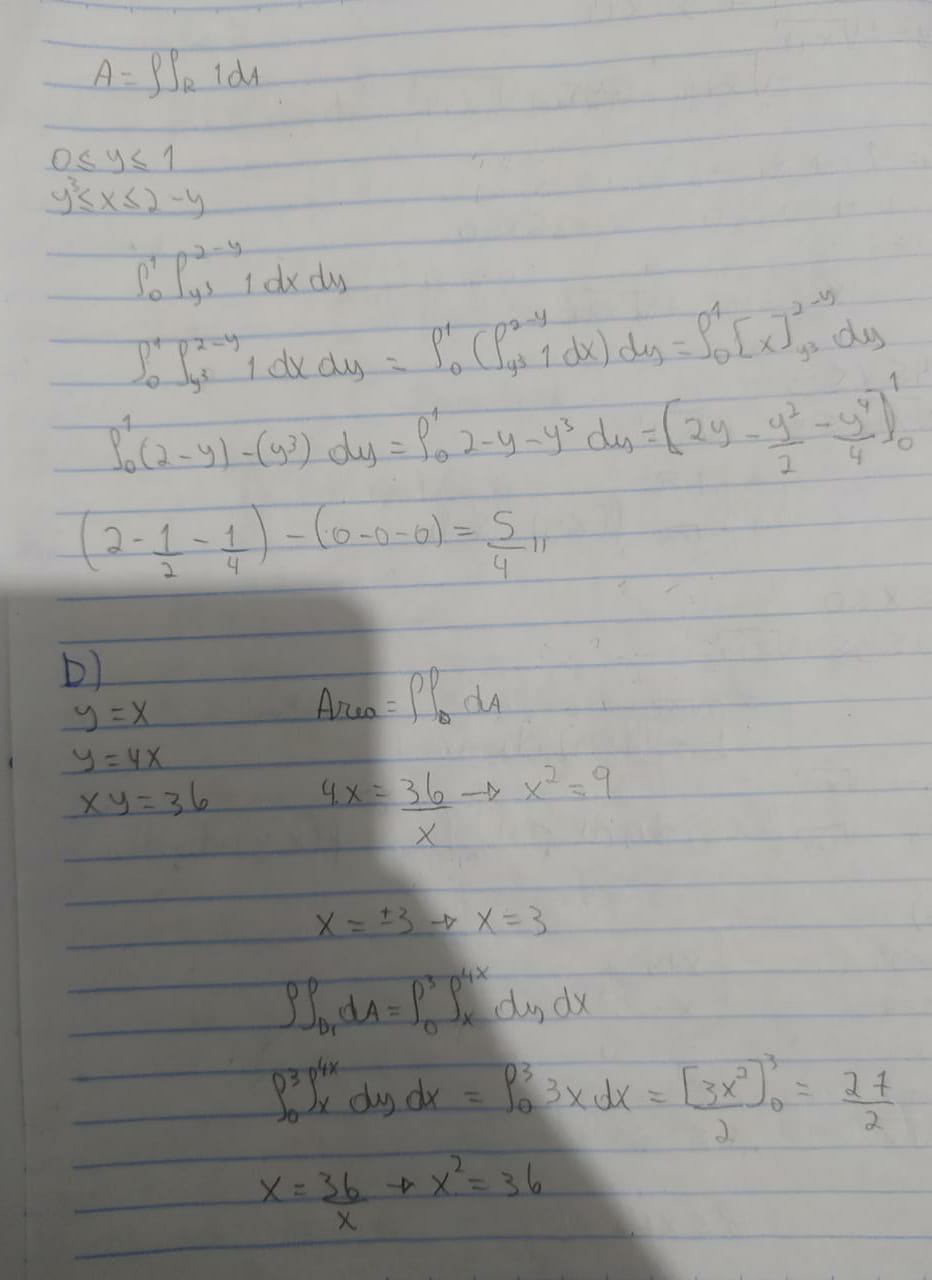 A = ∫∫_R 1 dA
0 ≤ y ≤ 1
y³ ≤ x ≤ 2 - y
∫₀¹ ∫_{y³}^{2-y} 1 dx dy
∫₀¹ ∫_{y³}^{2-y} 1 dx dy = ∫₀¹ (∫_{y³}^{2-y} 1 dx) dy = ∫₀¹ [x]_{y³}^{2-y} dy
∫₀¹ (2 - y) - (y³) dy = ∫₀¹ 2 - y - y³ dy = [2y - y²/2 - y⁴/4]₀¹
(2 - 1/2 - 1/4) - (0 - 0 - 0) = 5/4 //
D)
y = x    Area = ∫∫_D dA
y = 4x
xy = 36    4x = 36/x → x² = 9
x = ±3 → x = 3
∫∫_{D₁} dA = ∫₀³ ∫_x^{4x} dy dx
∫₀³ ∫_x^{4x} dy dx = ∫₀³ 3x dx = [3x²/2]₀³ = 27/2
x = 36/x → x² = 36